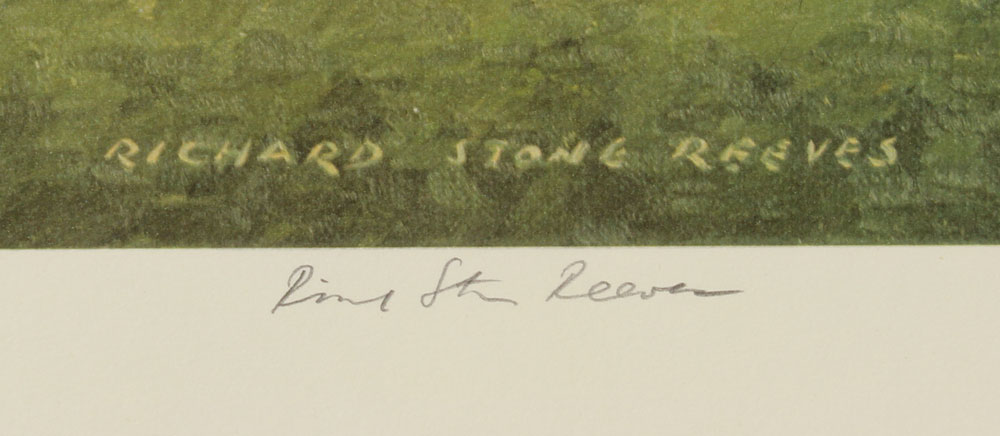 RICHARD STONE REEVES
Richard Stone Reeves